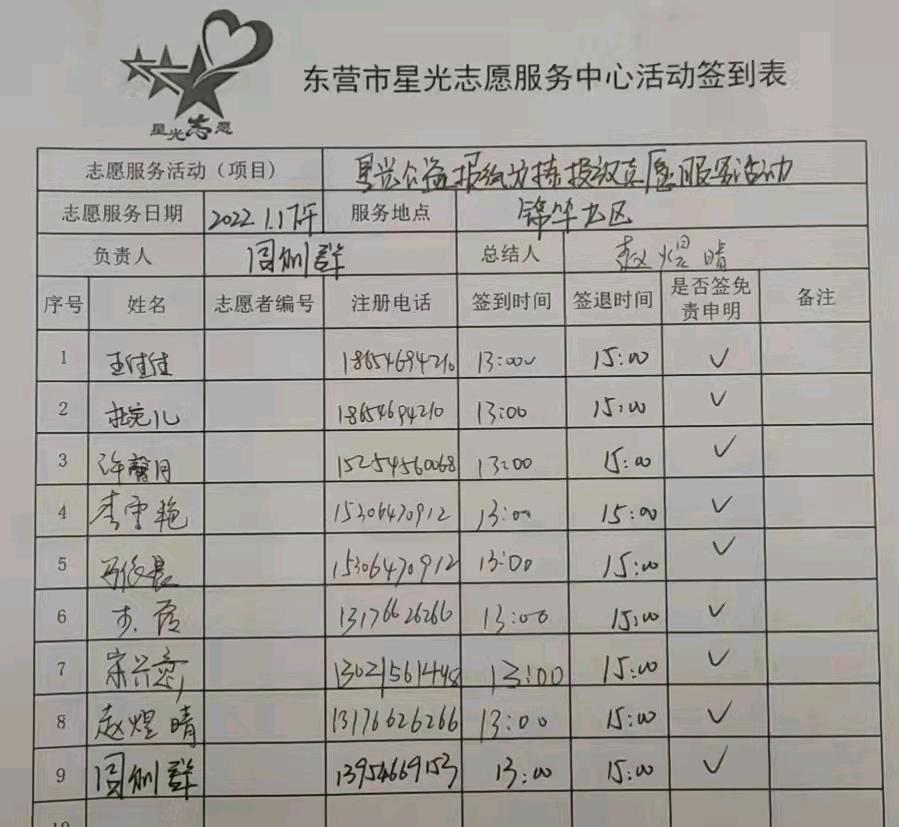 星光志愿
东营市星光志愿服务中心活动签到表
志愿服务活动（项目） 星光公益报纸分拣投放志愿服务活动
志愿服务日期 2022.1.17午 服务地点 锦华社区
负责人 群 总结人 赵煜晴
序号 姓名 志愿者编号 注册电话 签到时间 签退时间 是否签免责申明 备注
1 王佳佳 18654694210 13:00 15:00 ✓
2 18654694210 13:00 15:00 ✓
3 许馨月 15254560068 13:00 15:00 ✓
4 李雪艳 15306470912 13:00 15:00 ✓
5 15306470912 13:00 15:00 ✓
6 13176626266 13:00 15:00 ✓
7 宋兴 13021561448 13:00 15:00 ✓
8 赵煜晴 13176626266 13:00 15:00 ✓
9 群 13954669153 13:00 15:00 ✓
10